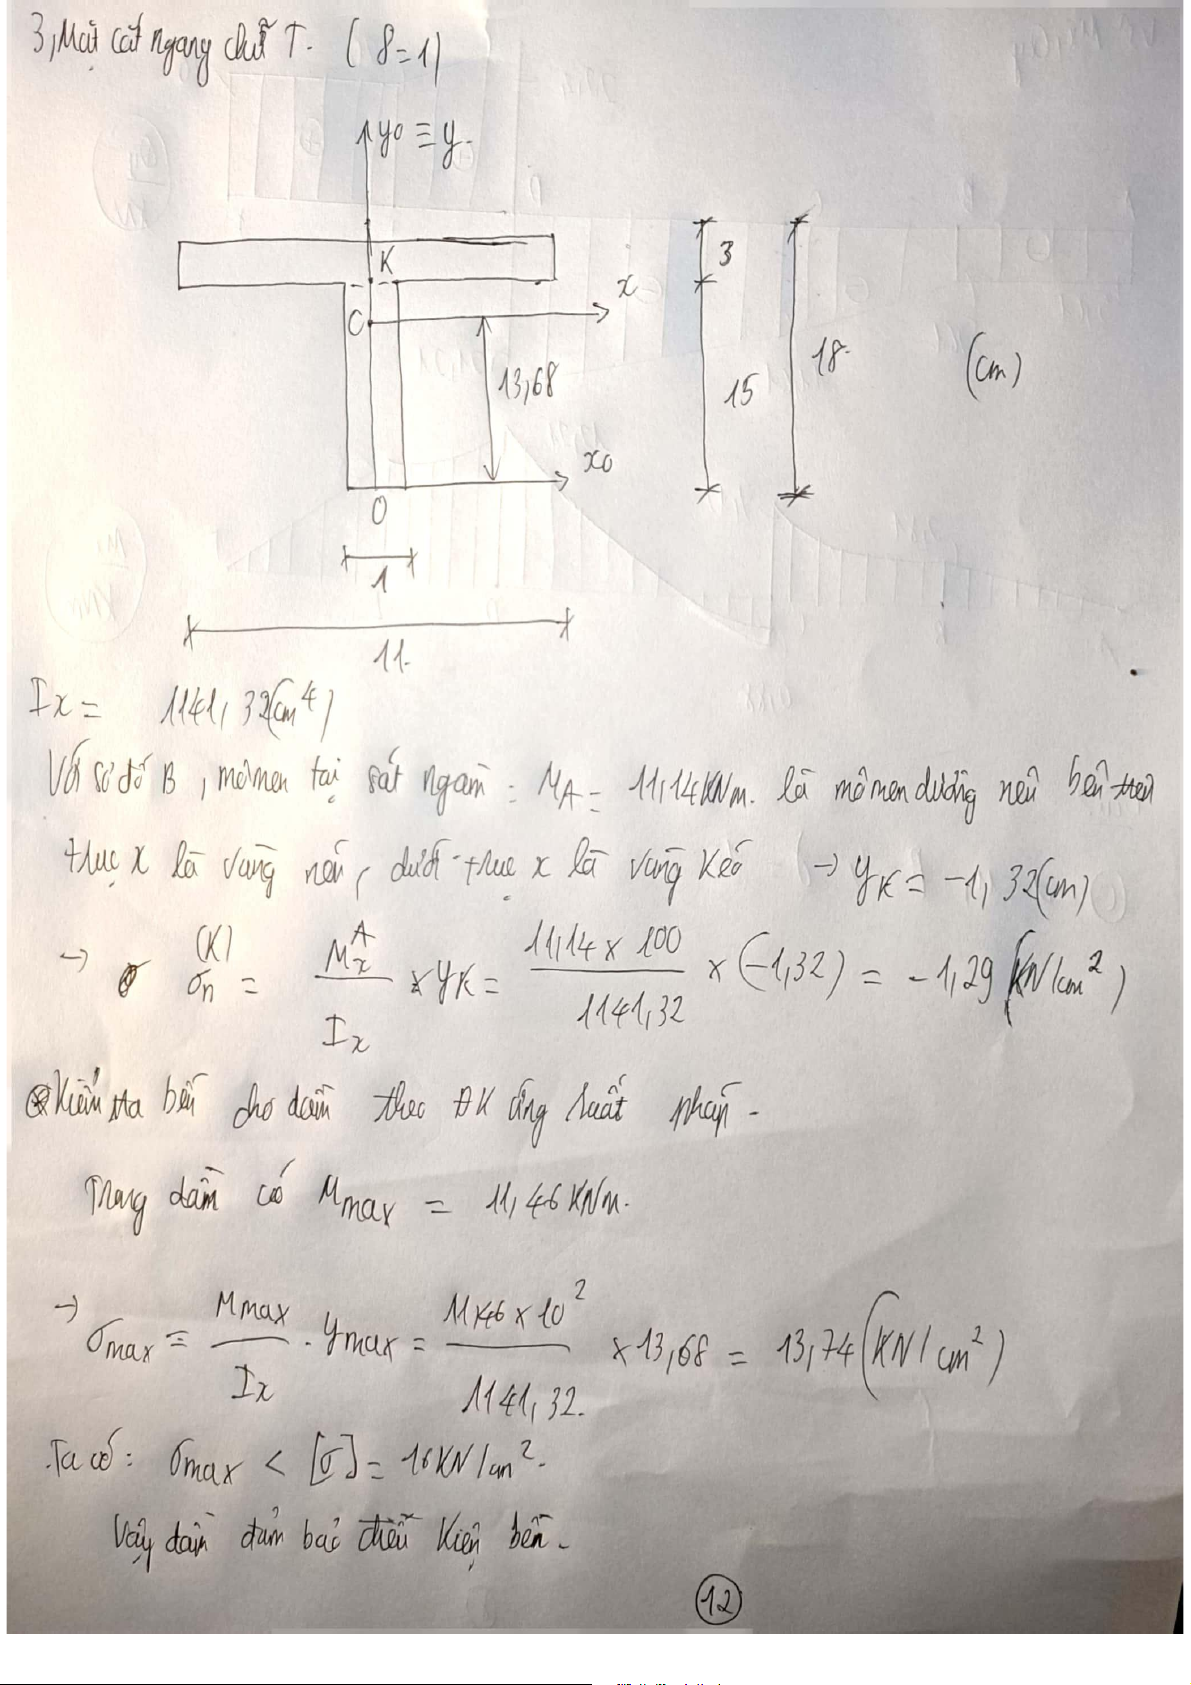 3, Mặt cắt ngang chữ T. ( δ=1)
y0 ≡ y.
K
x
3
C
13,68
15
18.
(cm)
x0
O
1
11.
Ix = 1141,32(cm⁴)
Với sơ đồ B, mômen tại sát ngàm: MA = 11,14KNm. là mômen dương nên bên trên
trục x là vùng nén, dưới trục x là vùng kéo → yK = -1,32(cm)
→ σn(K) = MxA / Ix × yK = 11,14 × 100 / 1141,32 × (-1,32) = -1,29 (KN/cm²)
Kiểm tra bền cho dầm theo ĐK ứng suất pháp.
Trong dầm có Mmax = 11,46 KNm.
→ σmax = Mmax / Ix . ymax = 11,46 × 10² / 1141,32. × 13,68 = 13,74 (KN/cm²)
Ta có: σmax < [σ] = 16KN/cm².
Vậy dầm đảm bảo điều kiện bền.
12